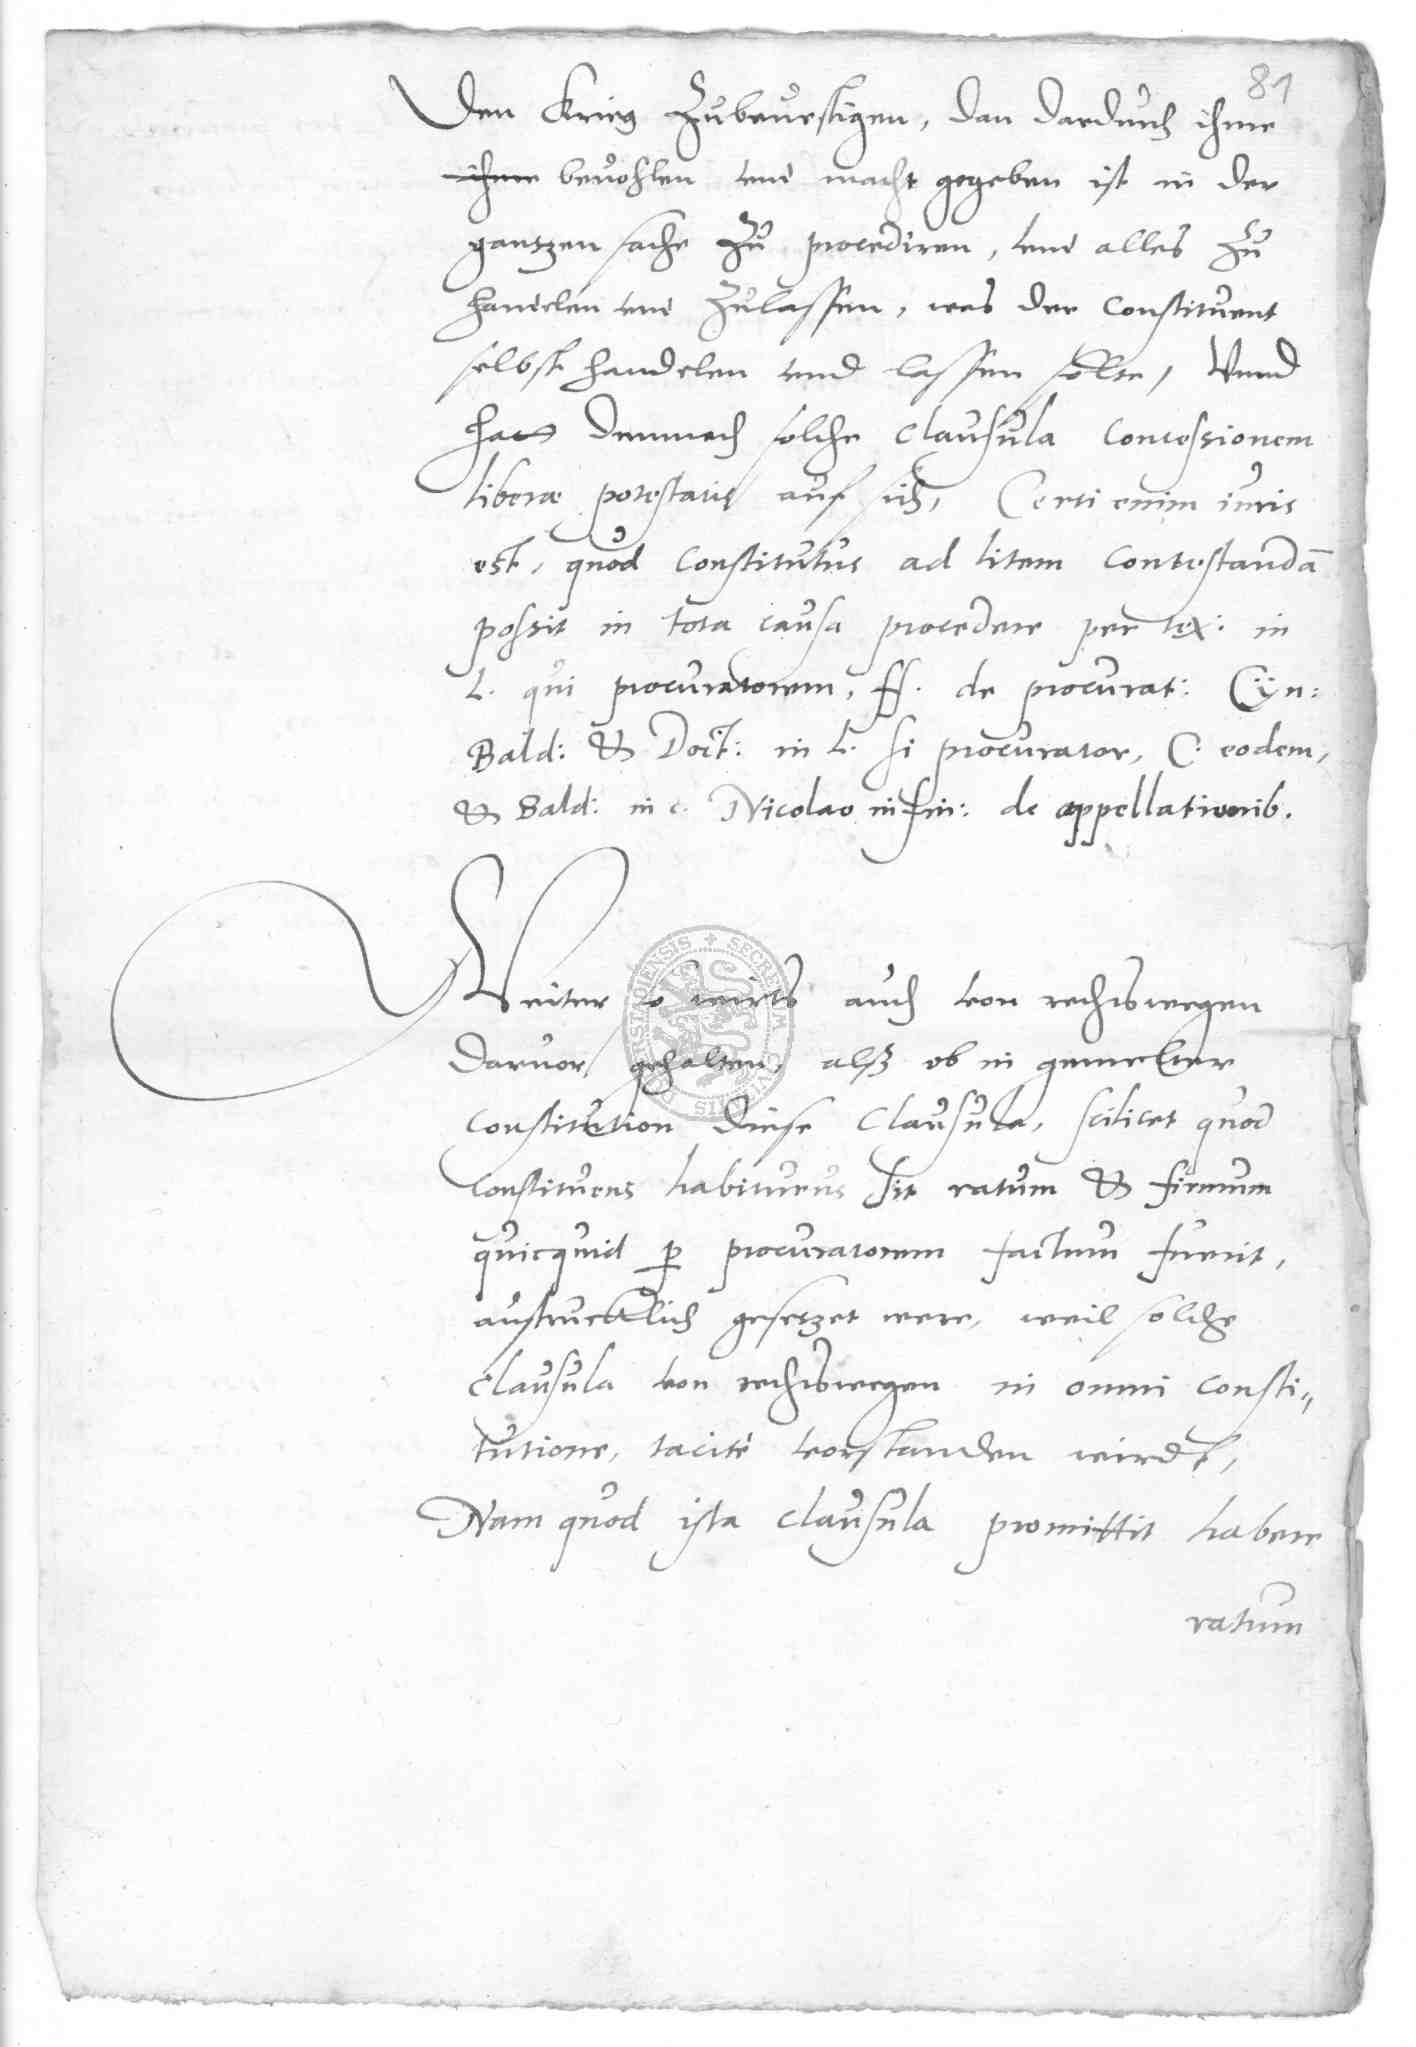 81
den Krieg zubeuestigen, dan dardurch ihme
ihme beuohlen vnd macht gegeben ist in der
gantzen sache zu procediren, vnd alles zu
handelen vnd zulassen, was der Constituent
selbst handelen vnd lassen solte, Vnnd
hatt demnach solche clausula Concessionem
liberæ potestatis auf sich, Certi enim iuris
est, quod Constitutus ad litem Contestandā
possit in tota causa procedere per tex: in
L. qui procuratorem, ff. de procurat: Cÿn:
Bald: & Doct: in L. si procurator, C. eodem,
& Bald: in c. Nicolao in fin: de appellationib.
Weiter so wirts auch von rechtswegen
daruor gehalten, alß ob in gemelter
Constitution diese Clausula, scilicet quod
Constituens habiturus sit ratum & firmum
quicquid p procuratorem factum fuerit,
austrucklich gesetzet were, weil solche
clausula von rechtswegen in omni consti-
tutione, tacitè vorstanden wirdt,
Nam quod ista clausula promittit habere
ratum